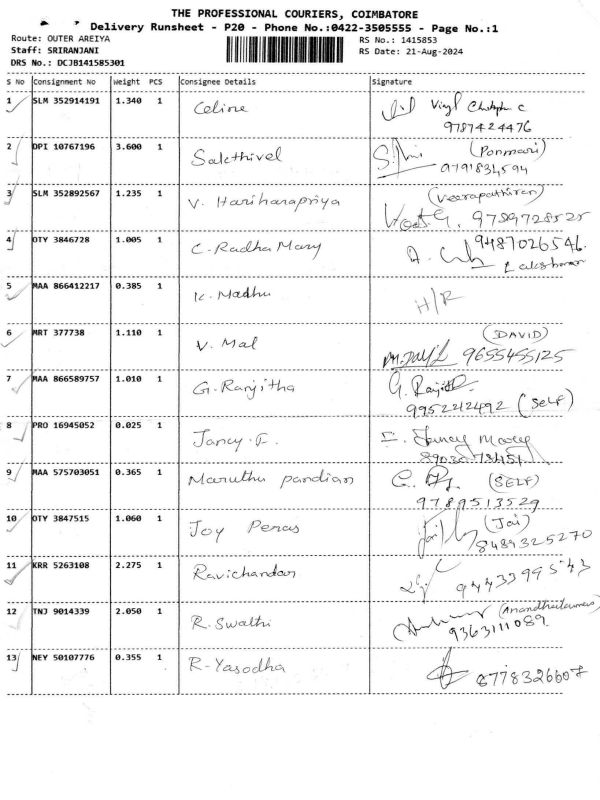 THE PROFESSIONAL COURIERS, COIMBATORE
Delivery Runsheet - P20 - Phone No.:0422-3505555 - Page No.:1
Route: OUTER AREIYA RS No.: 1415853
Staff: SRIRANJANI RS Date: 21-Aug-2024
DRS No.: DCJB141585301
S No Consignment No Weight PCS Consignee Details Signature
1 SLM 352914191 1.340 1 Celine
9787424476
2 DPI 10767196 3.600 1 Sakthivel (Ponmari)
9791834594
3 SLM 352892567 1.235 1 V. Hariharapriya (Veerapathiran)
9789728525
4 OTY 3846728 1.005 1 C. Radha Mary 9487026546
Lakshmanan
5 MAA 866412217 0.385 1 K. Madhu H/R
6 MRT 377738 1.110 1 V. Mal (DAVID)
9655455125
7 MAA 866589757 1.010 1 G. Ranjitha G. Ranjith
9952212492 (Self)
8 PRO 16945052 0.025 1 Jancy. F. Mary
9 MAA 575703051 0.365 1 Maruthu pandian (SELF)
9789513529
10 OTY 3847515 1.060 1 Joy Peras (Jai)
8489325270
11 KRR 5263108 2.275 1 Ravichandar 9443399543
12 TNJ 9014339 2.050 1 R. Swathi
9363111089
13 NEY 50107776 0.355 1 R-Yasodha 8778326607